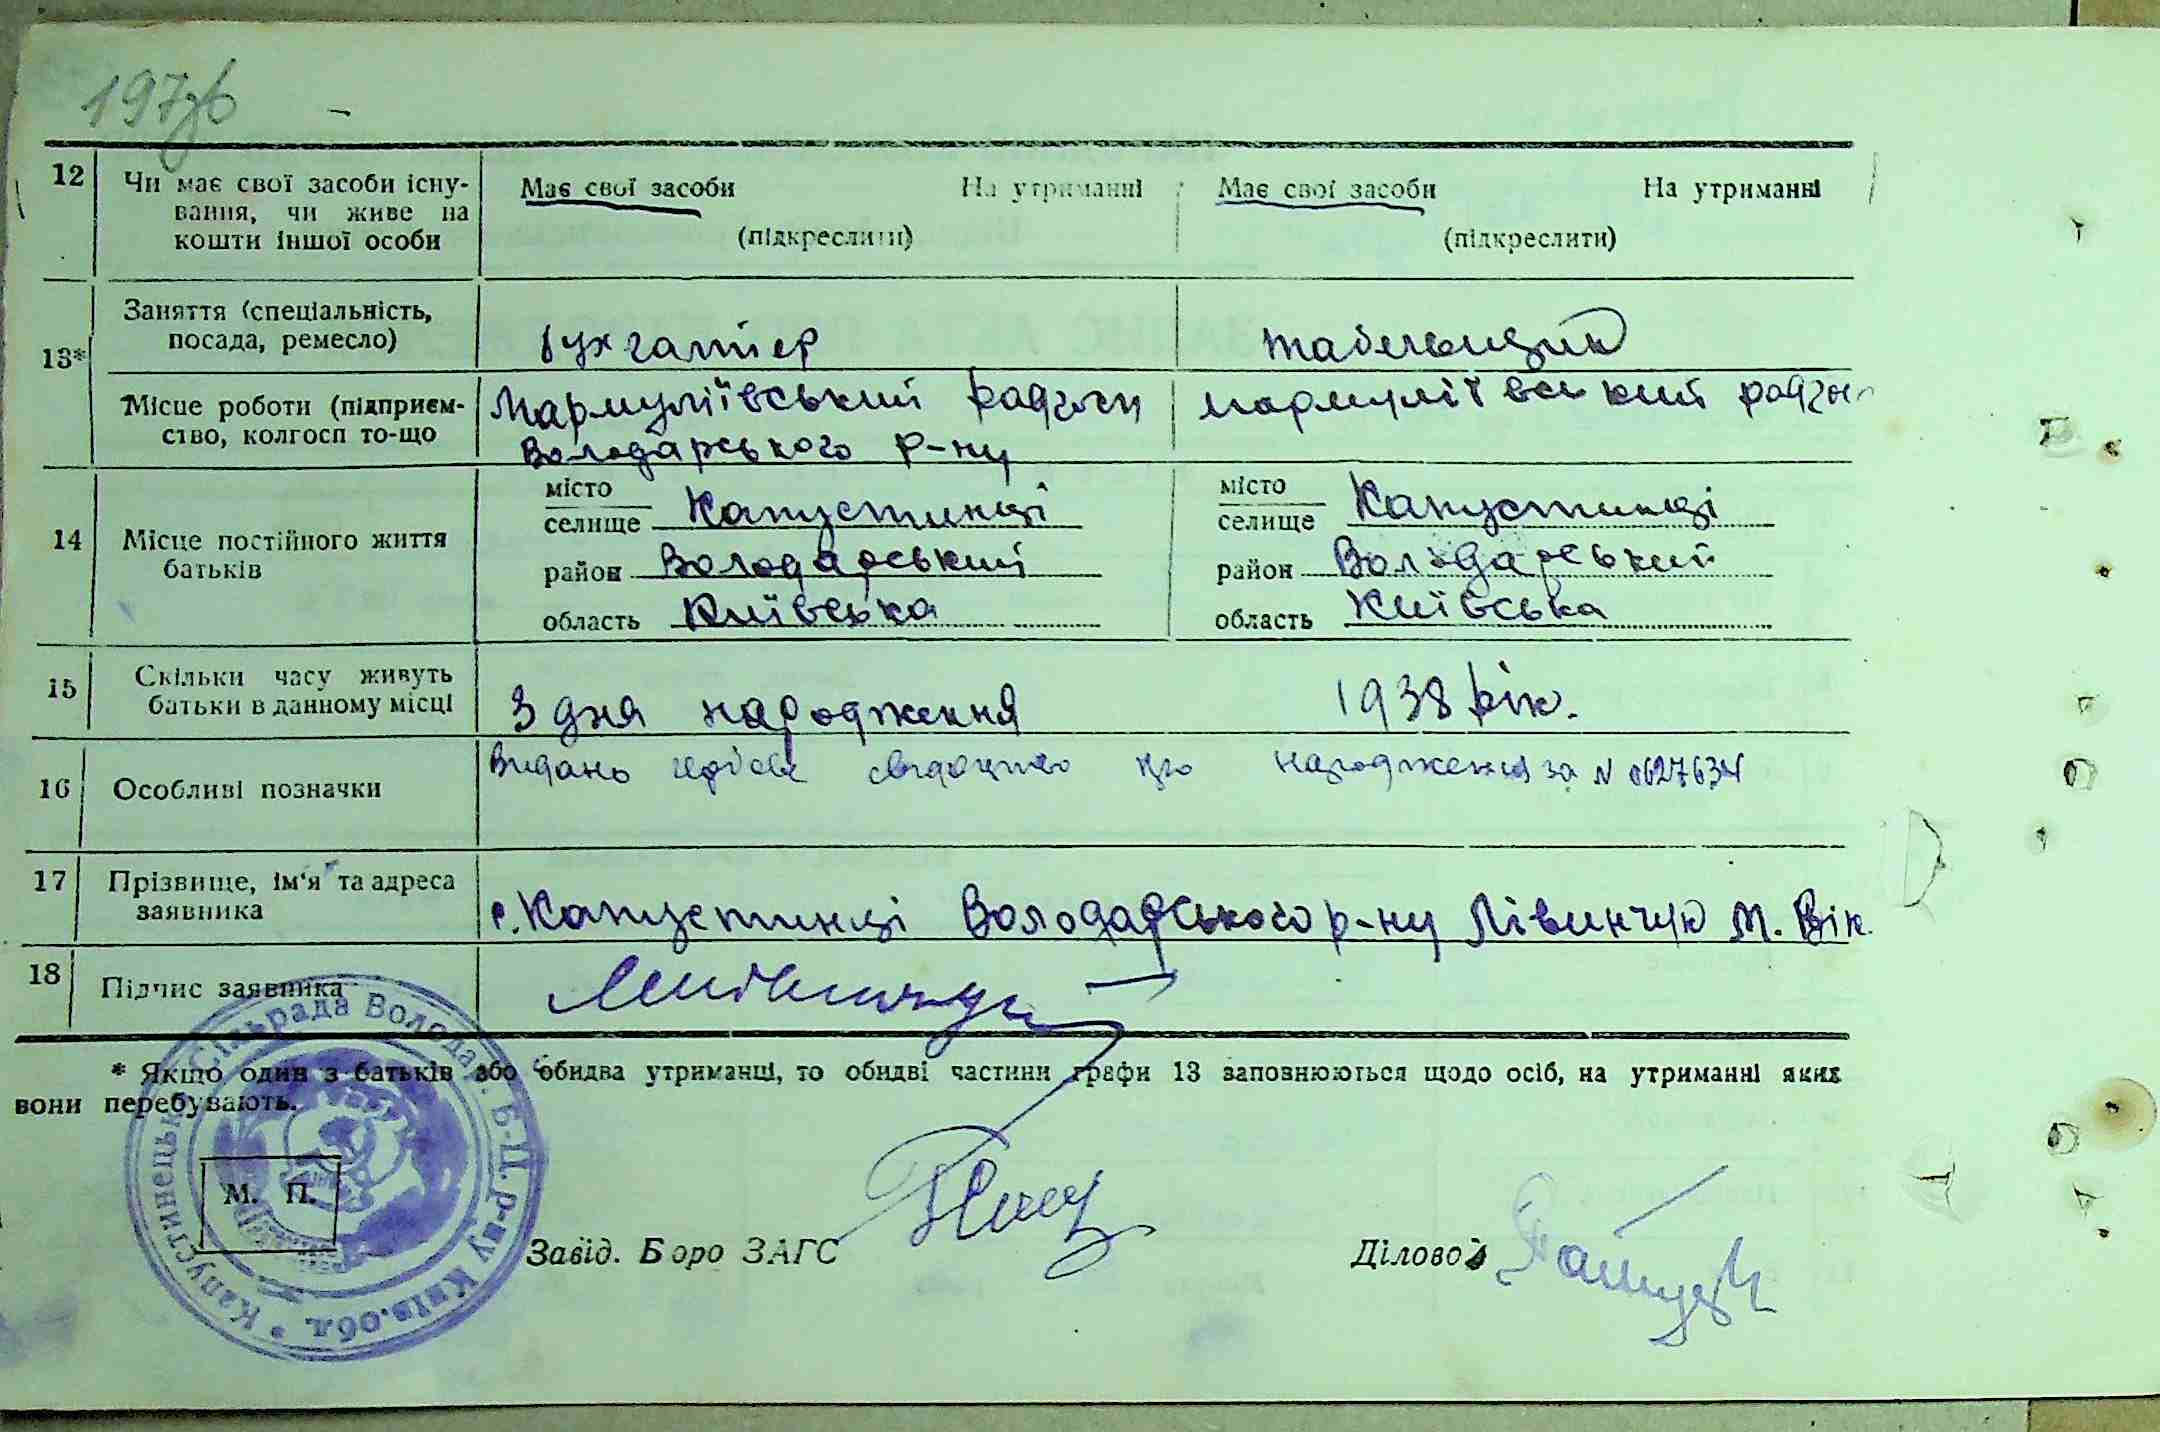 197зв
12 Чи має свої засоби існу-
вання, чи живе на
кошти іншої особи
Має свої засоби На утриманні
(підкреслити)
Має свої засоби На утриманні
(підкреслити)
13* Заняття (спеціальність,
посада, ремесло)
бухгалтер
табельщик
Місце роботи (підприєм-
ство, колгосп то-що
Мармуліївський радгосп
Володарського р-ну
Мармуліївський радгосп
14 Місце постійного життя
батьків
місто
селище Капустинці
район Володарський
область Київська
місто
селище Капустинці
район Володарський
область Київська
15 Скільки часу живуть
батьки в данному місці
З дня народження
1938 рік.
16 Особливі позначки
Видано свідоцтво про народження за N 0627634
17 Прізвище, ім'я та адреса
заявника
с. Капустинці Володарського р-ну Лівинчук М. Вік.
18 Підпис заявника
* Якщо один з батьків або обидва утриманці, то обидві частини графи 13 заповнюються щодо осіб, на утриманні яких
вони перебувають.
М. П.
Капустинецька Сільрада Володар. Б-Ц. р-ну Київ. обл.
Завід. Бюро ЗАГС
Діловод